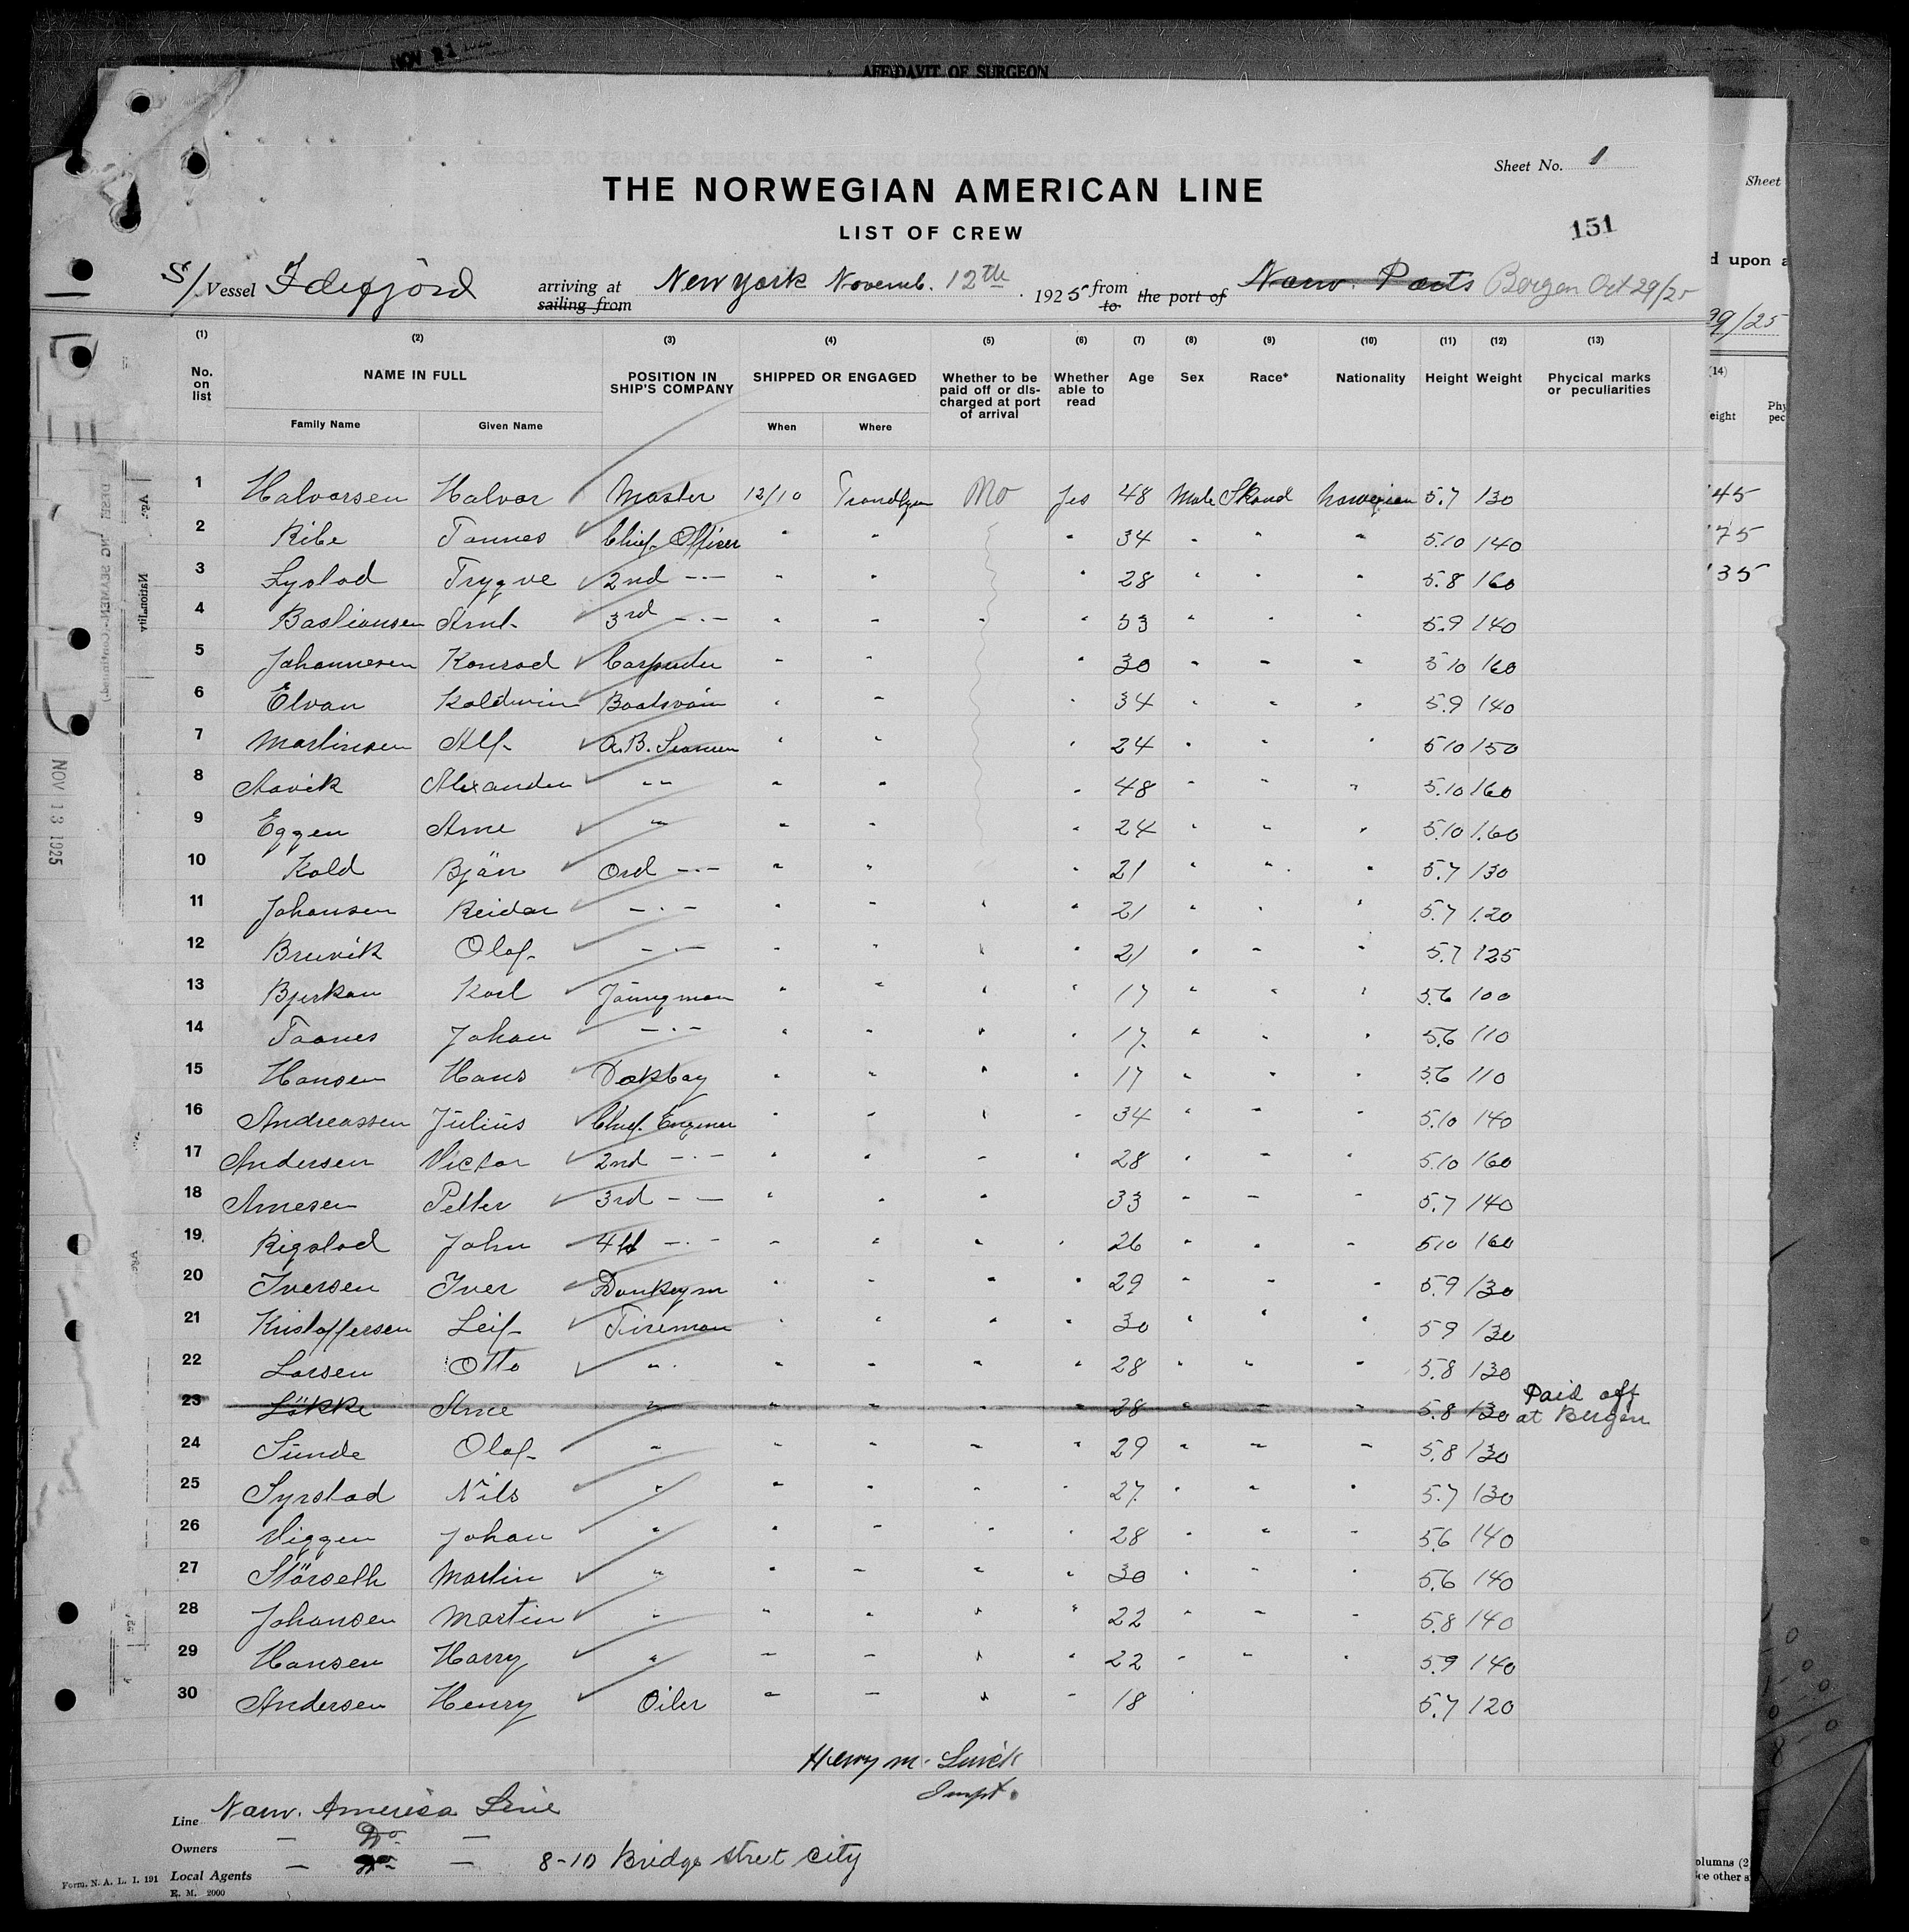 NOV 21
AFFIDAVIT OF SURGEON
Sheet No. 1
THE NORWEGIAN AMERICAN LINE
LIST OF CREW
151
S/ Vessel Idefjord arriving at sailing from New York Novemb. 12th 1925 from to the port of Norw. Ports Bergen Oct 29/25
(1) (2) (3) (4) (5) (6) (7) (8) (9) (10) (11) (12) (13)
No. on list NAME IN FULL POSITION IN SHIP'S COMPANY SHIPPED OR ENGAGED Whether to be paid off or discharged at port of arrival Whether able to read Age Sex Race* Nationality Height Weight Phycical marks or peculiarities
Family Name Given Name When Where
1 Halvorsen Halvor Master 12/10 Trondhjem No Yes 48 Male Skand Norwegian 5.7 130
2 Ribe Tonnes Chief Officer " " " 34 " " " 5.10 140
3 Lystad Trygve 2nd -"- " " " 28 " " " 5.8 160
4 Bastiansen Arnt 3rd -"- " " " " 33 " " " 5.9 140
5 Johannesen Konrad Carpenter " " " 30 " " " 5.10 160
6 Elvan Koldewin Boatsvain " " " 34 " " " 5.9 140
7 Martinsen Alf A.B. Seamen " " " 24 " " " 5.10 150
8 Aavik Alexander "" " " " 48 " " " 5.10 160
9 Eggen Arne " " " " 24 " " " 5.10 160
10 Kold Bjän Ord -"- " " " 21 " " " 5.7 130
11 Johansen Reidar -"- " " " " 21 " " " 5.7 120
12 Bruvik Olaf -"- " " " " 21 " " " 5.7 125
13 Bjerkan Karl Joungman " " " " 17 " " " 5.6 100
14 Taanes Johan -"- " " " " 17 " " " 5.6 110
15 Hansen Hans Dekboy " " " " 17 " " " 5.6 110
16 Andreassen Julius Chief Engineer " " " " 34 " " " 5.10 140
17 Andersen Victor 2nd -"- " " " " 28 " " " 5.10 160
18 Arnesen Petter 3rd -"- " " " 33 " " " 5.7 140
19 Rigstad John 4th -"- " " " " 26 " " " 5.10 160
20 Iversen Iver Donkeym " " " " 29 " " " 5.9 130
21 Kristoffersen Leif Fireman " " " " 30 " " " 5.9 130
22 Larsen Otto " " " " " 28 " " " 5.8 130
23 Lökke Arne " " " " " 28 " " " 5.8 130 Paid off at Bergen
24 Sunde Olaf " " " " " 29 " " " 5.8 130
25 Syrstad Nils " " " " " 27 " " " 5.7 130
26 Viggen Johan " " " " " 28 " " " 5.6 140
27 Störseth Martin " " " " " 30 " " " 5.6 140
28 Johansen Martin " " " " " 22 " " " 5.8 140
29 Hansen Harry " " " " " 22 " " " 5.9 140
30 Andersen Henry Oiler " " " " 18 " 5.7 120
Henry M.
Line Norw. America Line
Owners — Do —
Local Agents — Do — 8-10 Bridge street City
Form. N. A. L. I. 191
E. M. 2000
NOV 13 1925
Nationality
Age
Sheet
d upon a
29/25
(14)
eight
Phy
pec
45
75
35
olumns (2
ice other s